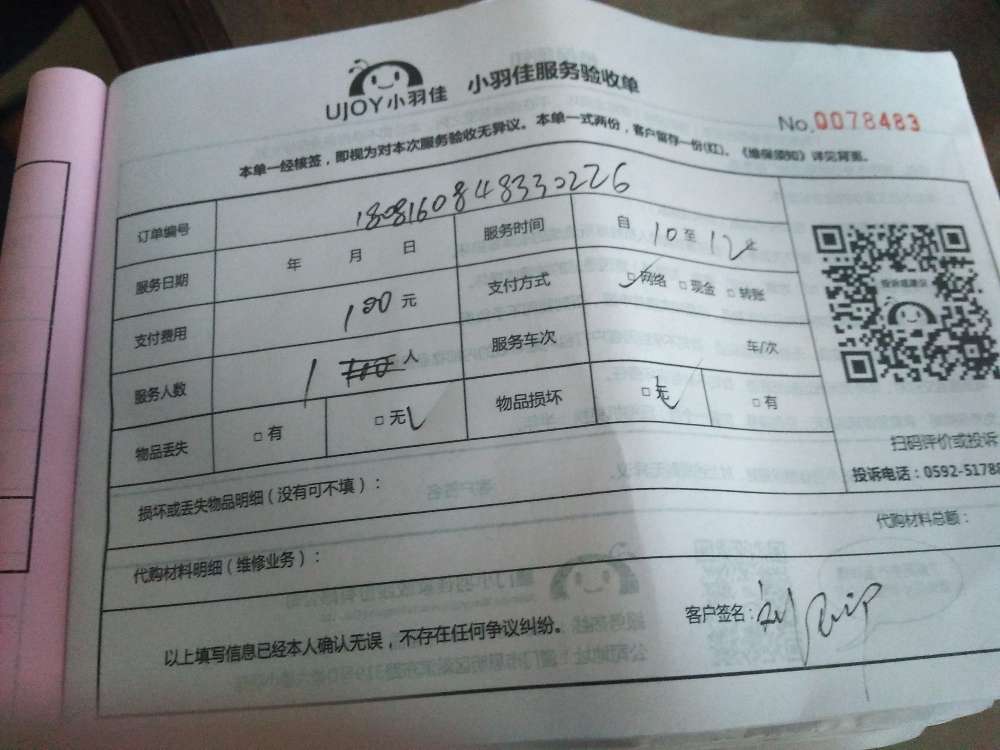 UJOY小羽佳 小羽佳服务验收单
No.0078483
本单一经核签，即视为对本次服务验收无异议。本单一式两份，客户留存一份(红)。《维保须知》详见背面。
订单编号 1808160848330226
服务日期 年 月 日 服务时间 自 10 至 12 止
支付费用 100 元 支付方式 □网络 □现金 □转账
服务人数 1 人 服务车次 车/次
物品丢失 □有 □无 物品损坏 □无 □有
扫码评价或投诉
投诉电话：0592-51788
损坏或丢失物品明细（没有可不填）：
代购材料明细（维修业务）： 代购材料总额：
以上填写信息已经本人确认无误，不存在任何争议纠纷。 客户签名：刘